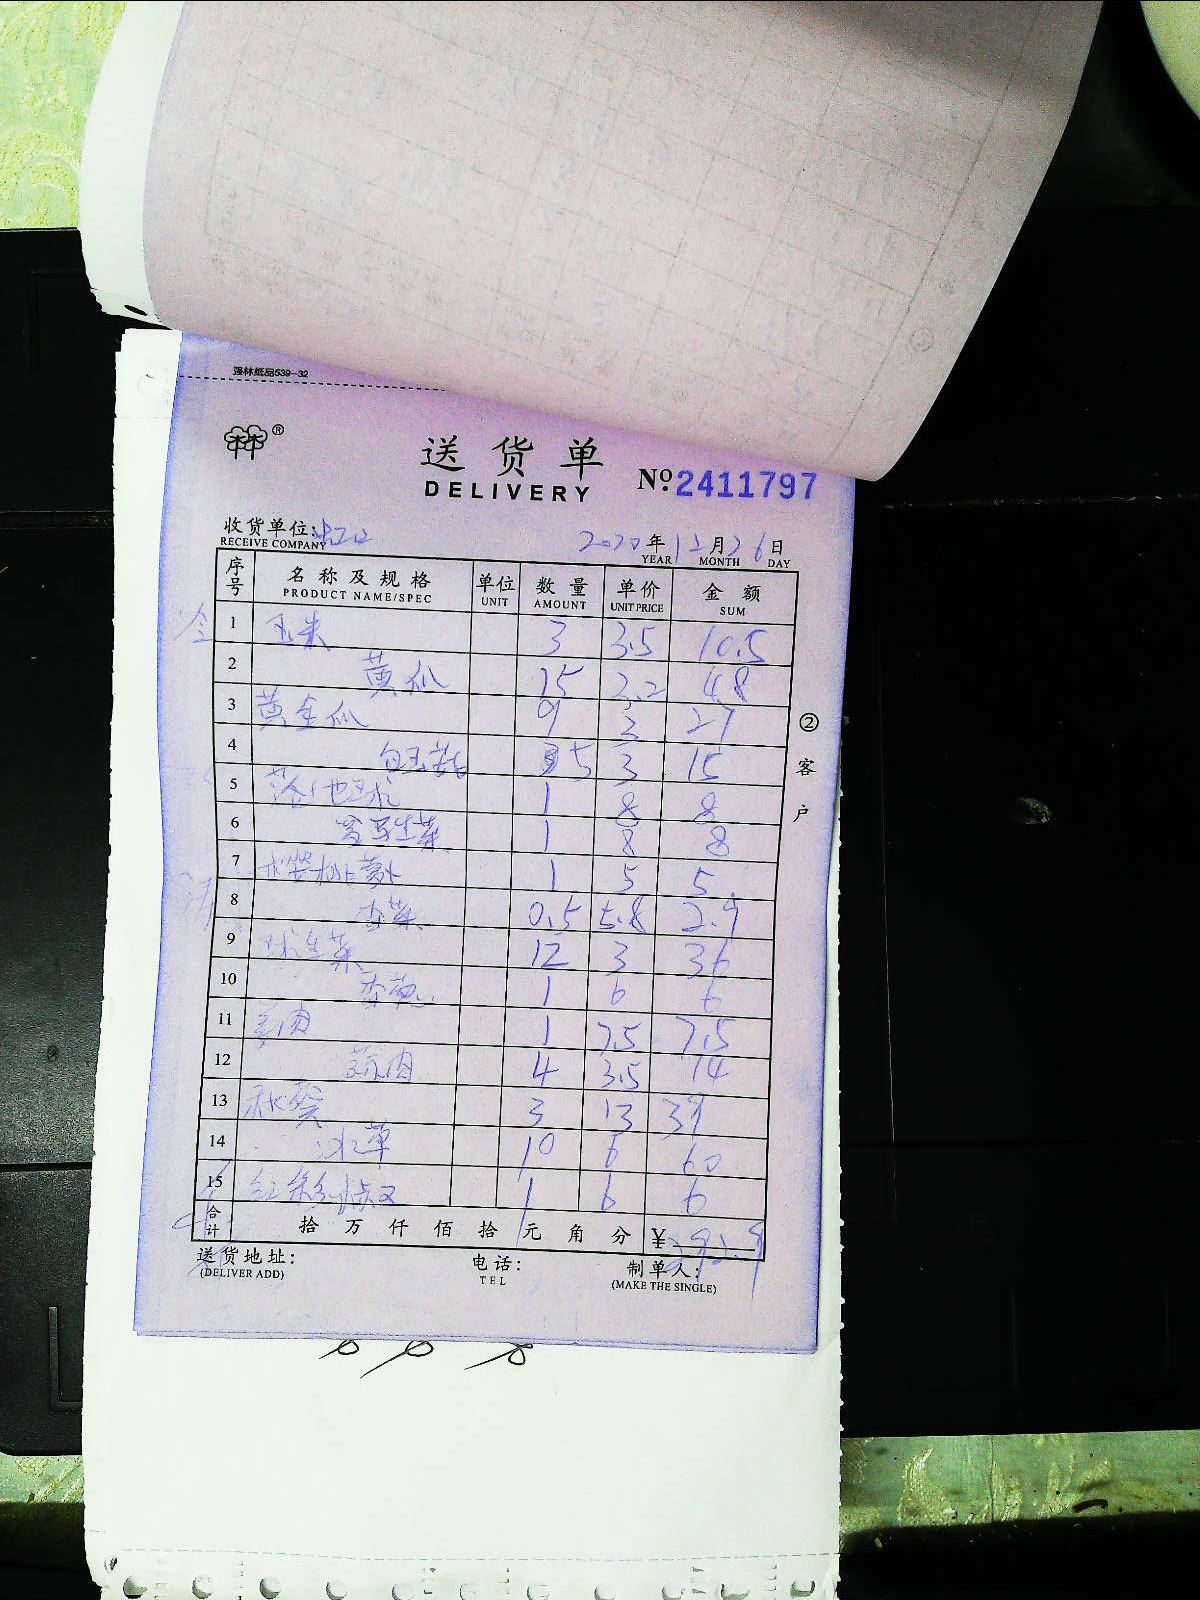 强林纸品539-32
®
送货单
DELIVERY
№ 2411797
收货单位:
RECEIVE COMPANY
2020年12月26日
YEAR MONTH DAY
序号 名称及规格 单位 数量 单价 金额
PRODUCT NAME/SPEC UNIT AMOUNT UNIT PRICE SUM
1 玉米 3 3.5 10.5
2 黄瓜 15 3.2 48
3 黄金瓜 9 3 27
4 白玉菇 5 3 15
5 1 8 8
6 罗马生菜 1 8 8
7 樱桃萝卜 1 5 5
8 香菜 0.5 5.8 2.9
9 球生菜 12 3 36
10 香葱 1 6 6
11 姜肉 1 7.5 7.5
12 蒜肉 4 3.5 14
13 秋葵 3 13 39
14 冰草 10 6 60
15 红彩椒 1 6 6
合计 拾万仟佰拾元角分 ¥ 292.9
②客户
送货地址:
(DELIVER ADD)
电话:
TEL
制单人:
(MAKE THE SINGLE)